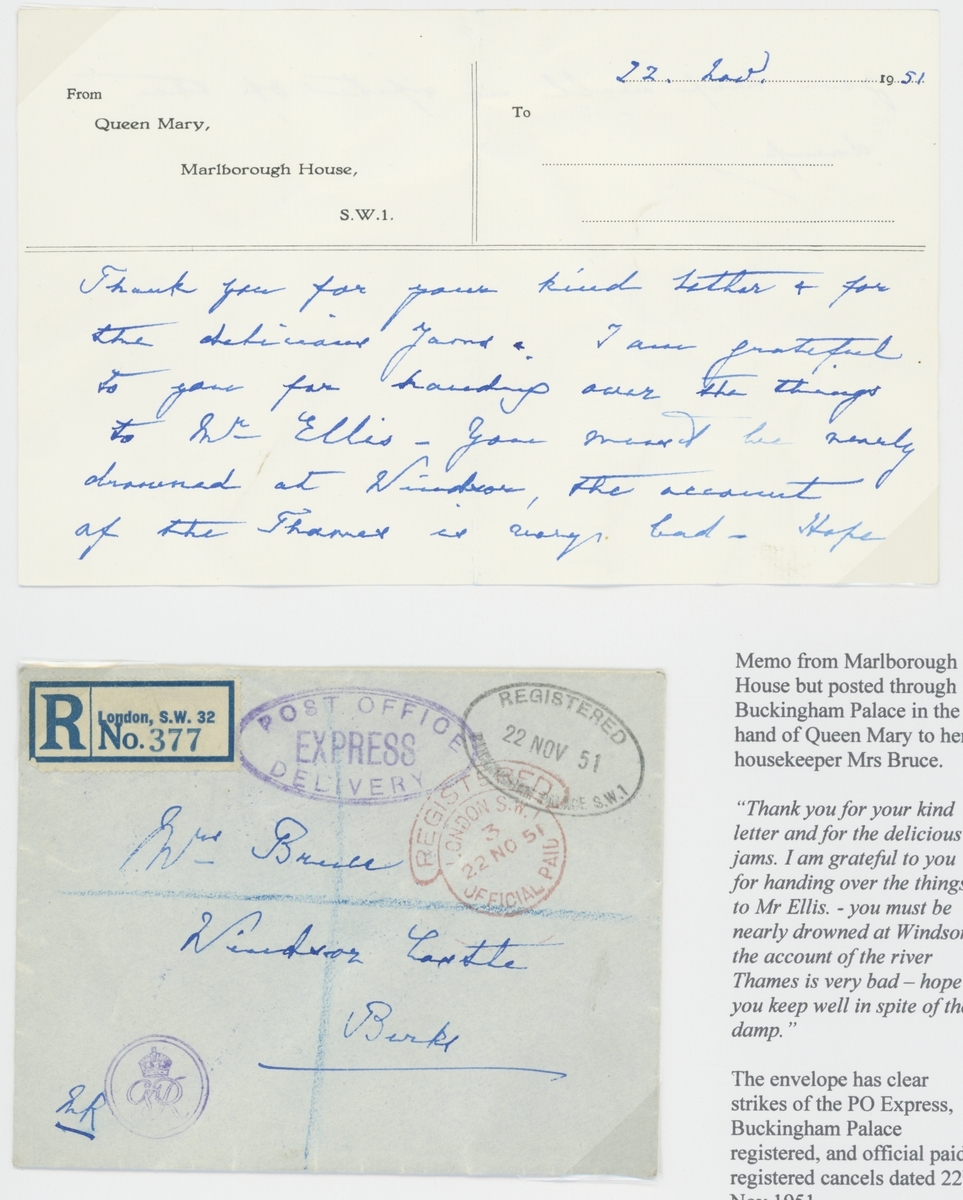 22. Nov. 1951
From
Queen Mary,
Marlborough House,
S.W.1.
To
Thank you for your kind letter & for
the delicious Jams. I am grateful
to you for handing over the things
to Mr Ellis - You must be nearly
drowned at Windsor, the account
of the Thames is very bad - Hope
R London, S.W. 32
No. 377
POST OFFICE
EXPRESS
DELIVERY
REGISTERED
22 NOV 51
BUCKINGHAM PALACE S.W.1
REGISTERED
LONDON S.W.1
3
22 NO 51
OFFICIAL PAID
Mrs Bruce
Windsor Castle
Berks
MR
Memo from Marlborough
House but posted through
Buckingham Palace in the
hand of Queen Mary to her
housekeeper Mrs Bruce.
“Thank you for your kind
letter and for the delicious
jams. I am grateful to you
for handing over the things
to Mr Ellis. - you must be
nearly drowned at Windsor
the account of the river
Thames is very bad – hope
you keep well in spite of the
damp.”
The envelope has clear
strikes of the PO Express,
Buckingham Palace
registered, and official paid
registered cancels dated 22
Nov 1951